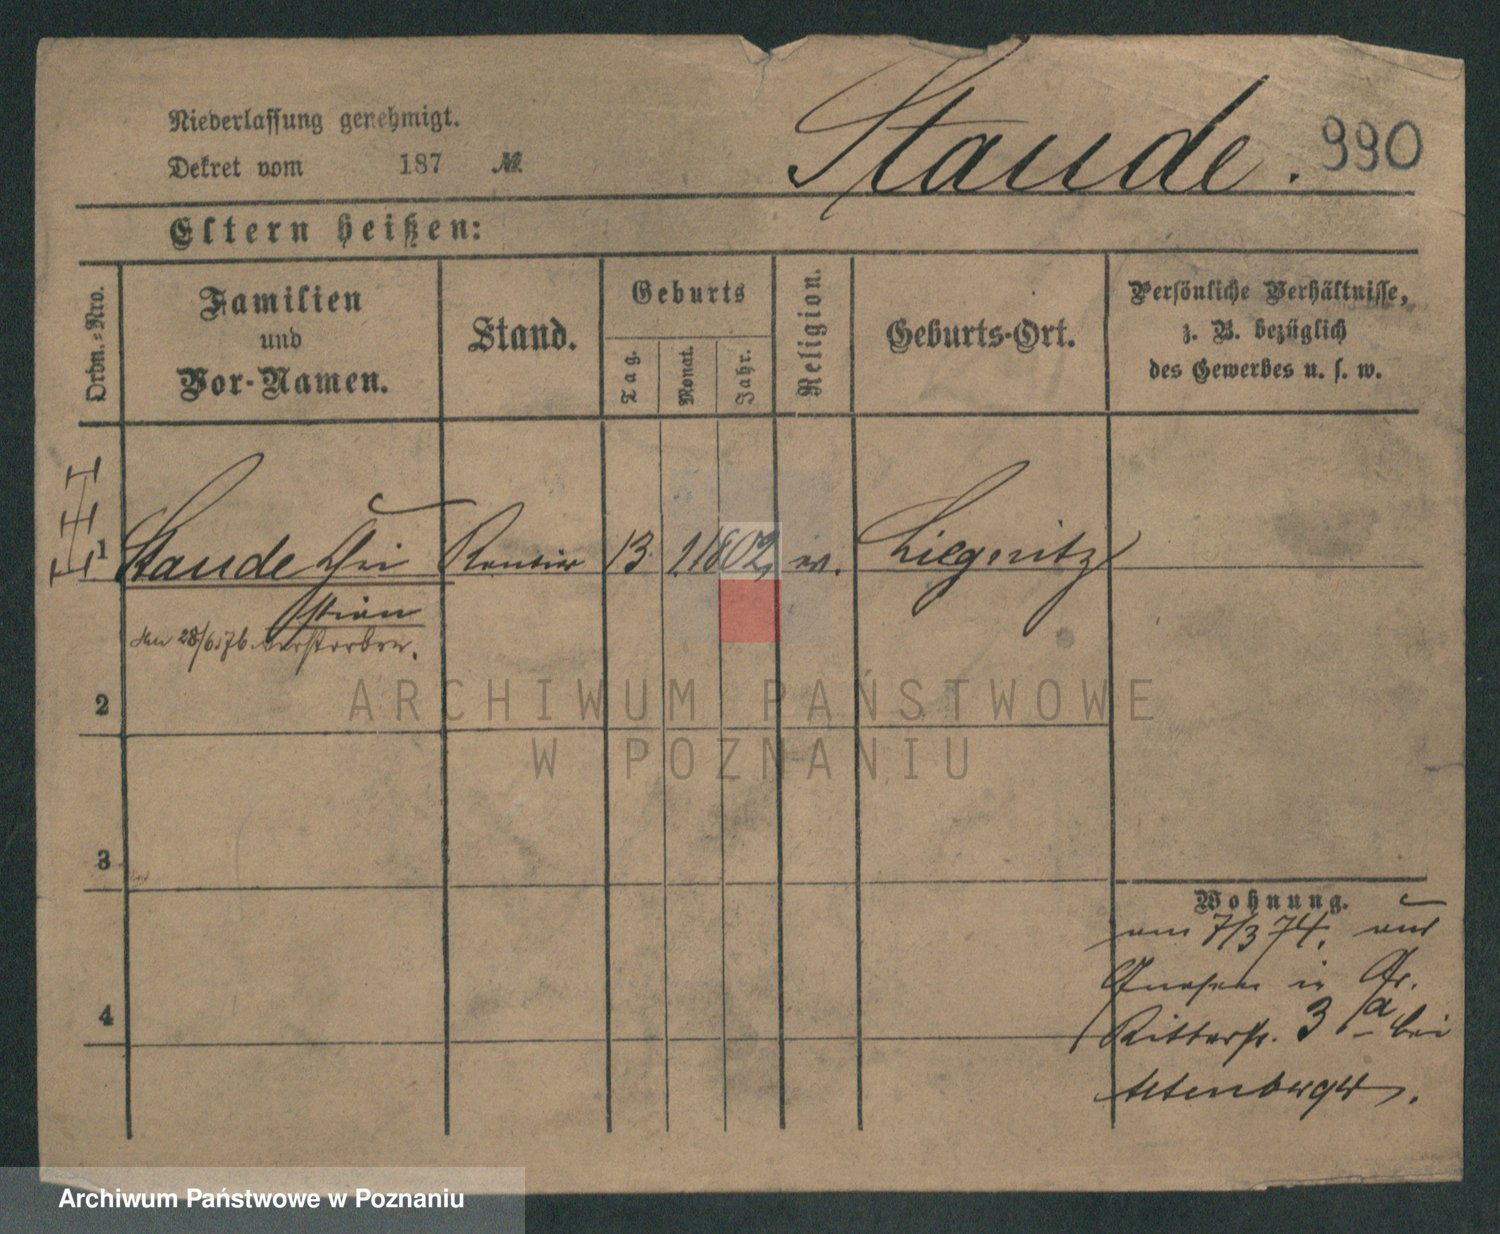 Niederlassung genehmigt.
Dekret vom 187 №
Staude. 990
Eltern heißen:
Ordn.-Nro.
Familien
und
Vor-Namen.
Stand.
Geburts
Tag.
Monat.
Jahr.
Religion.
Geburts-Ort.
Persönliche Verhältnisse,
z. B. bezüglich
des Gewerbes u. s. w.
1 Staude Chri Rentier 13 1 1802 ev. Liegnitz
stian
den 28/6.76. verstorben.
2
ARCHIWUM PAŃSTWOWE
W POZNANIU
3
Wohnung.
am 7/3 74. aus
Gnesen in Gr.
4
Ritterstr. 3 a bei
Altenberger.
Archiwum Państwowe w Poznaniu